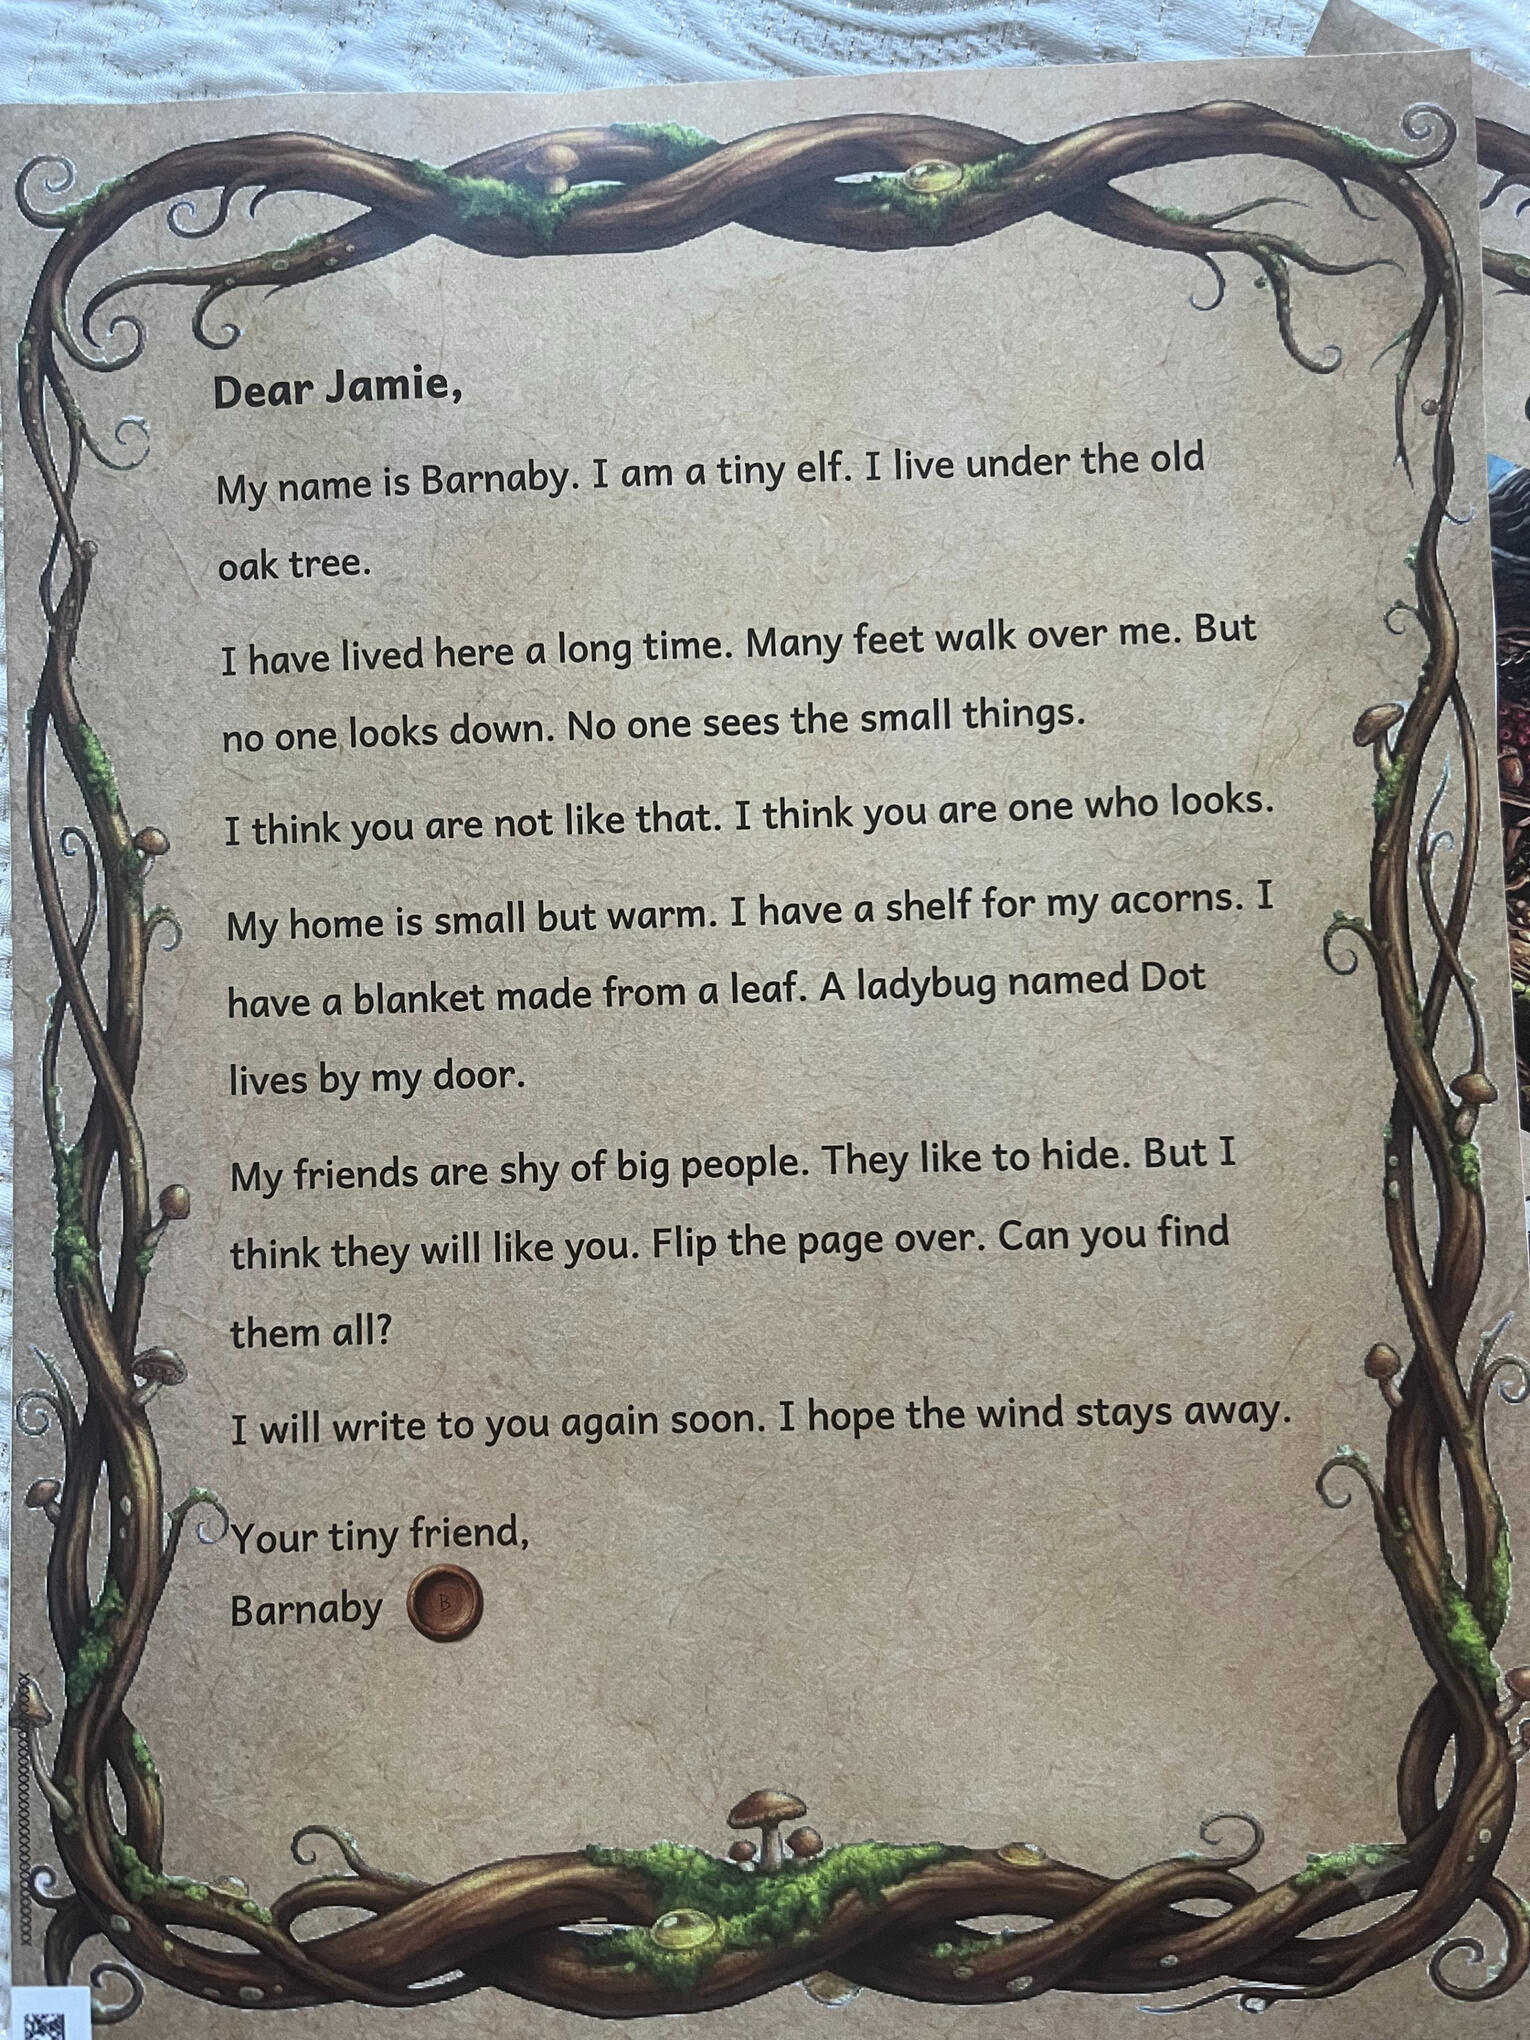 Dear Jamie,
My name is Barnaby. I am a tiny elf. I live under the old
oak tree.
I have lived here a long time. Many feet walk over me. But
no one looks down. No one sees the small things.
I think you are not like that. I think you are one who looks.
My home is small but warm. I have a shelf for my acorns. I
have a blanket made from a leaf. A ladybug named Dot
lives by my door.
My friends are shy of big people. They like to hide. But I
think they will like you. Flip the page over. Can you find
them all?
I will write to you again soon. I hope the wind stays away.
Your tiny friend,
Barnaby
B